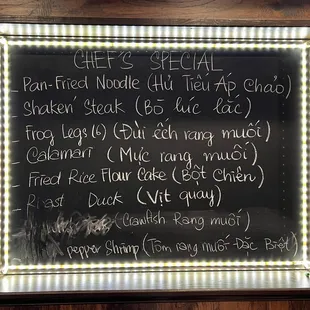 CHEF'S SPECIAL
Pan-Fried Noodle (Hủ Tiếu Áp Chảo)
Shaken Steak (Bò lúc lắc)
Frog Legs (6) (Đùi ếch rang muối)
Calamari (Mực rang muối)
Fried Rice Flour Cake (Bột Chiên)
Roast Duck (Vịt quay)
Crawfish Rang muối)
pepper Shrimp (Tôm rang muối Đặc Biệt)